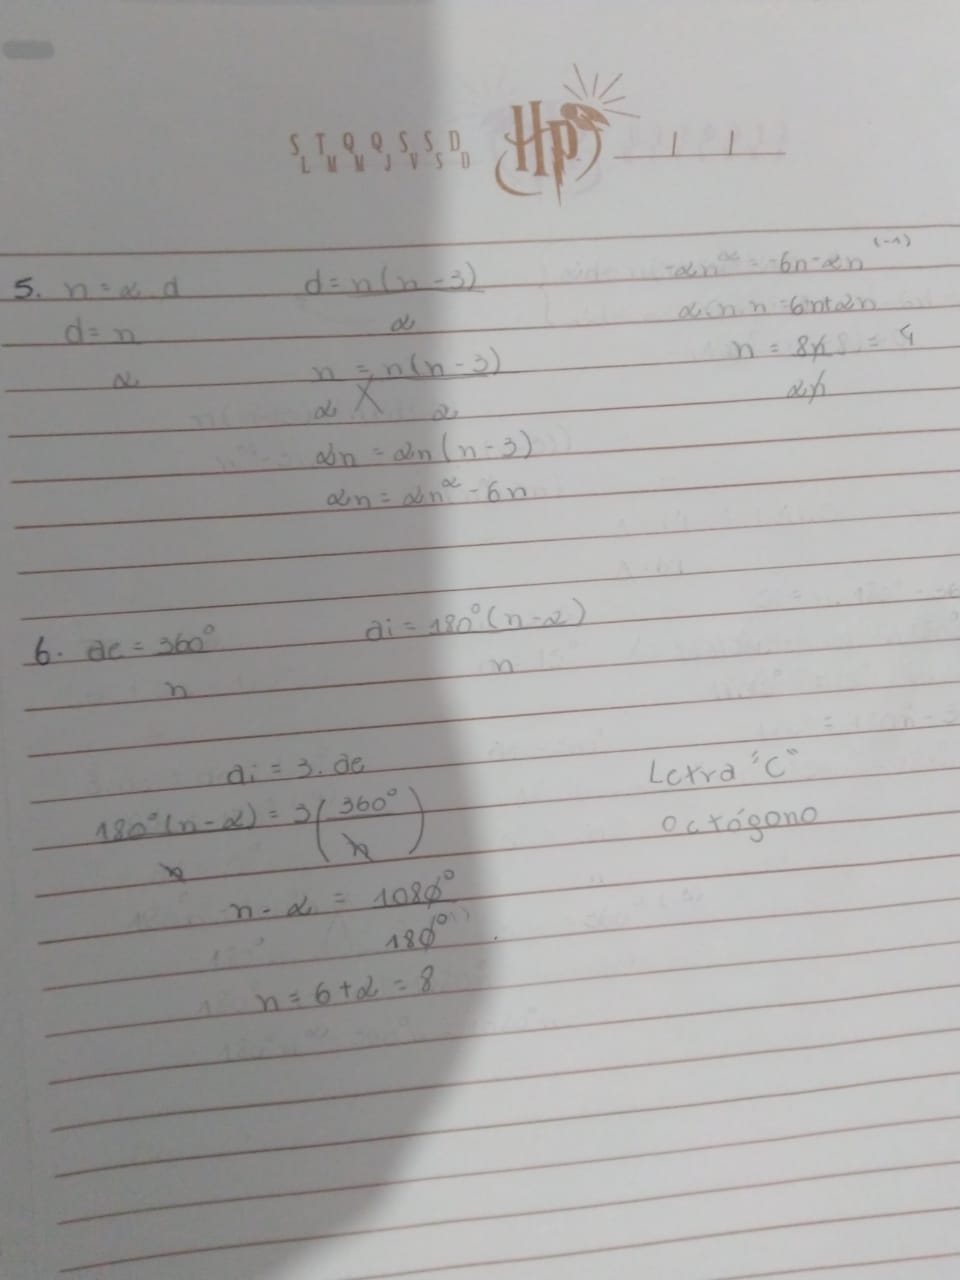 S T Q Q S S D
L M M J V S D
HP
5. n = 2 . d
d = n
2
d = n(n - 3)
2
n = n(n - 3)
2 2
2n = 2n(n - 3)
2n = 2n² - 6n
-2n² = -6n - 2n (-1)
n = 6n + 2n
n = 8n = 4
2n
6. ae = 360°
n
ai = 180°(n - 2)
n
ai = 3. ae
180°(n - 2) = 3(360°)
n n
n - 2 = 1080°
180°
n = 6 + 2 = 8
Letra "C"
octógono